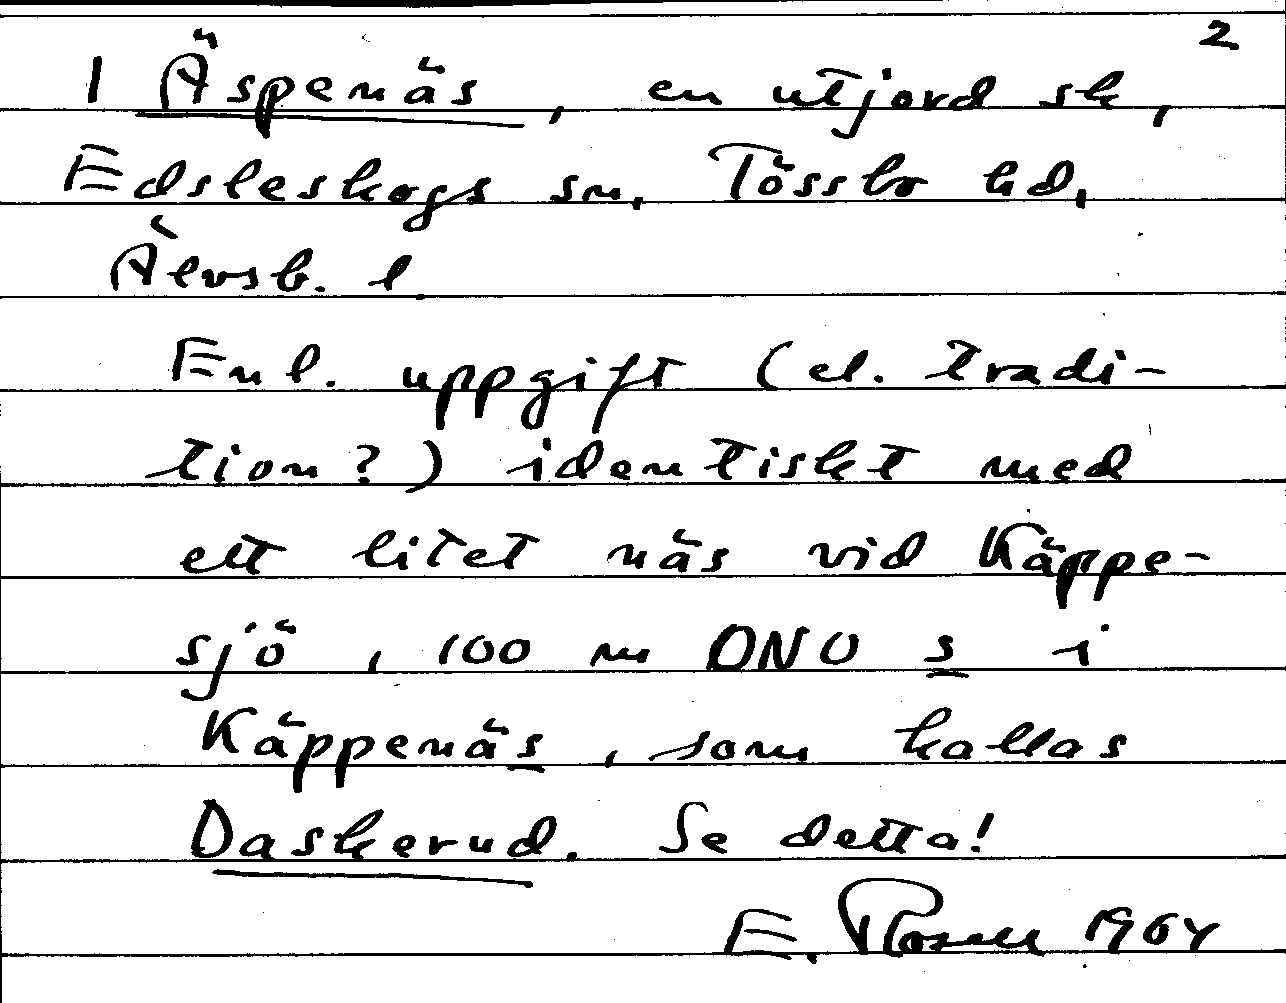 2
1 Äspenäs, en utjord sk,
Edsleskogs sn, Tössbo hd,
Älvsb. l
Enl. uppgift (el. tradi-
tion?) identiskt med
ett litet näs vid Käppe-
sjö, 100 m ONO s i
Käppenäs, som kallas
Daskerud. Se detta!
E. Rosell 1964